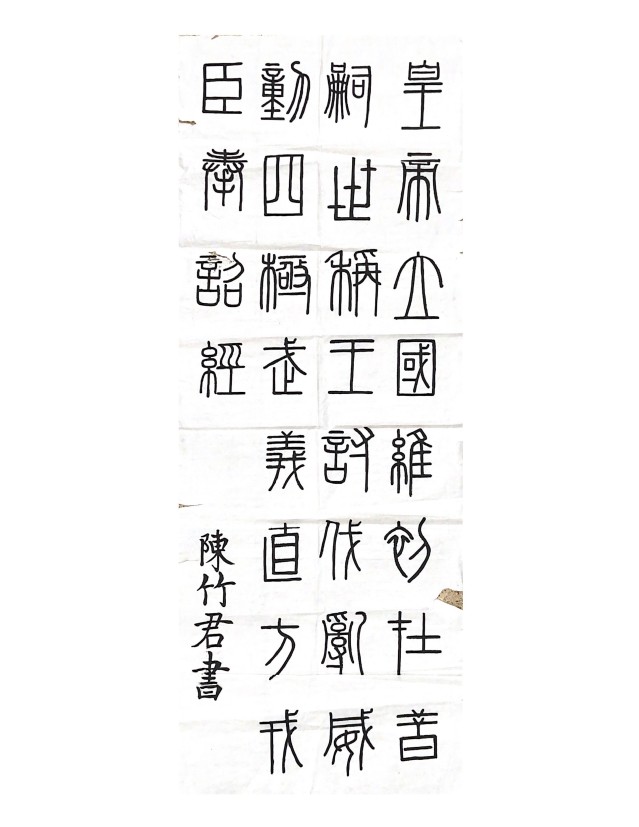 皇帝立國維初在昔
嗣世稱王討伐亂威
動四極武義直方戎
臣奉詔經
陳竹君書